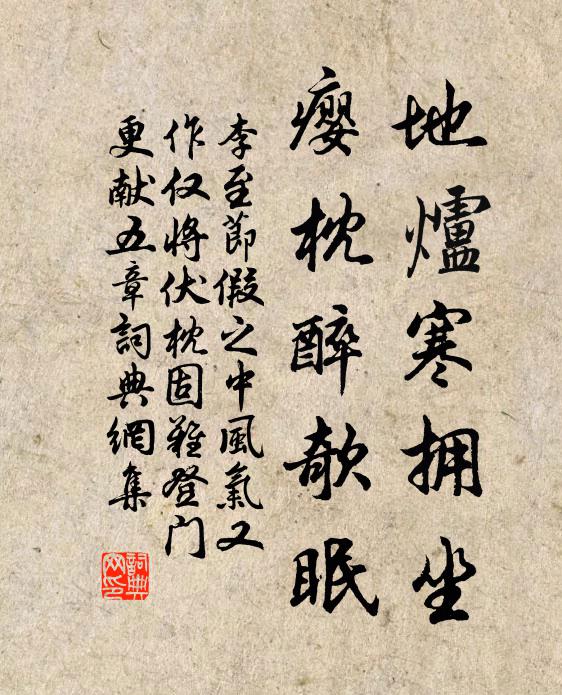 地爐寒拥坐
癭枕醉欹眠
李至節假之中風氣又
作仅将伏枕固難登门
更献五章詞典網集
詞典
网印